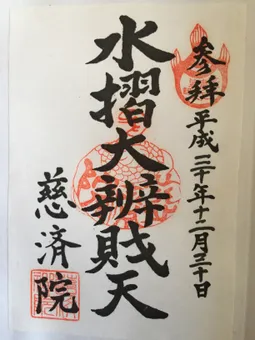 参拝 平成三十年十二月三十日
水摺大辨財天
慈済院